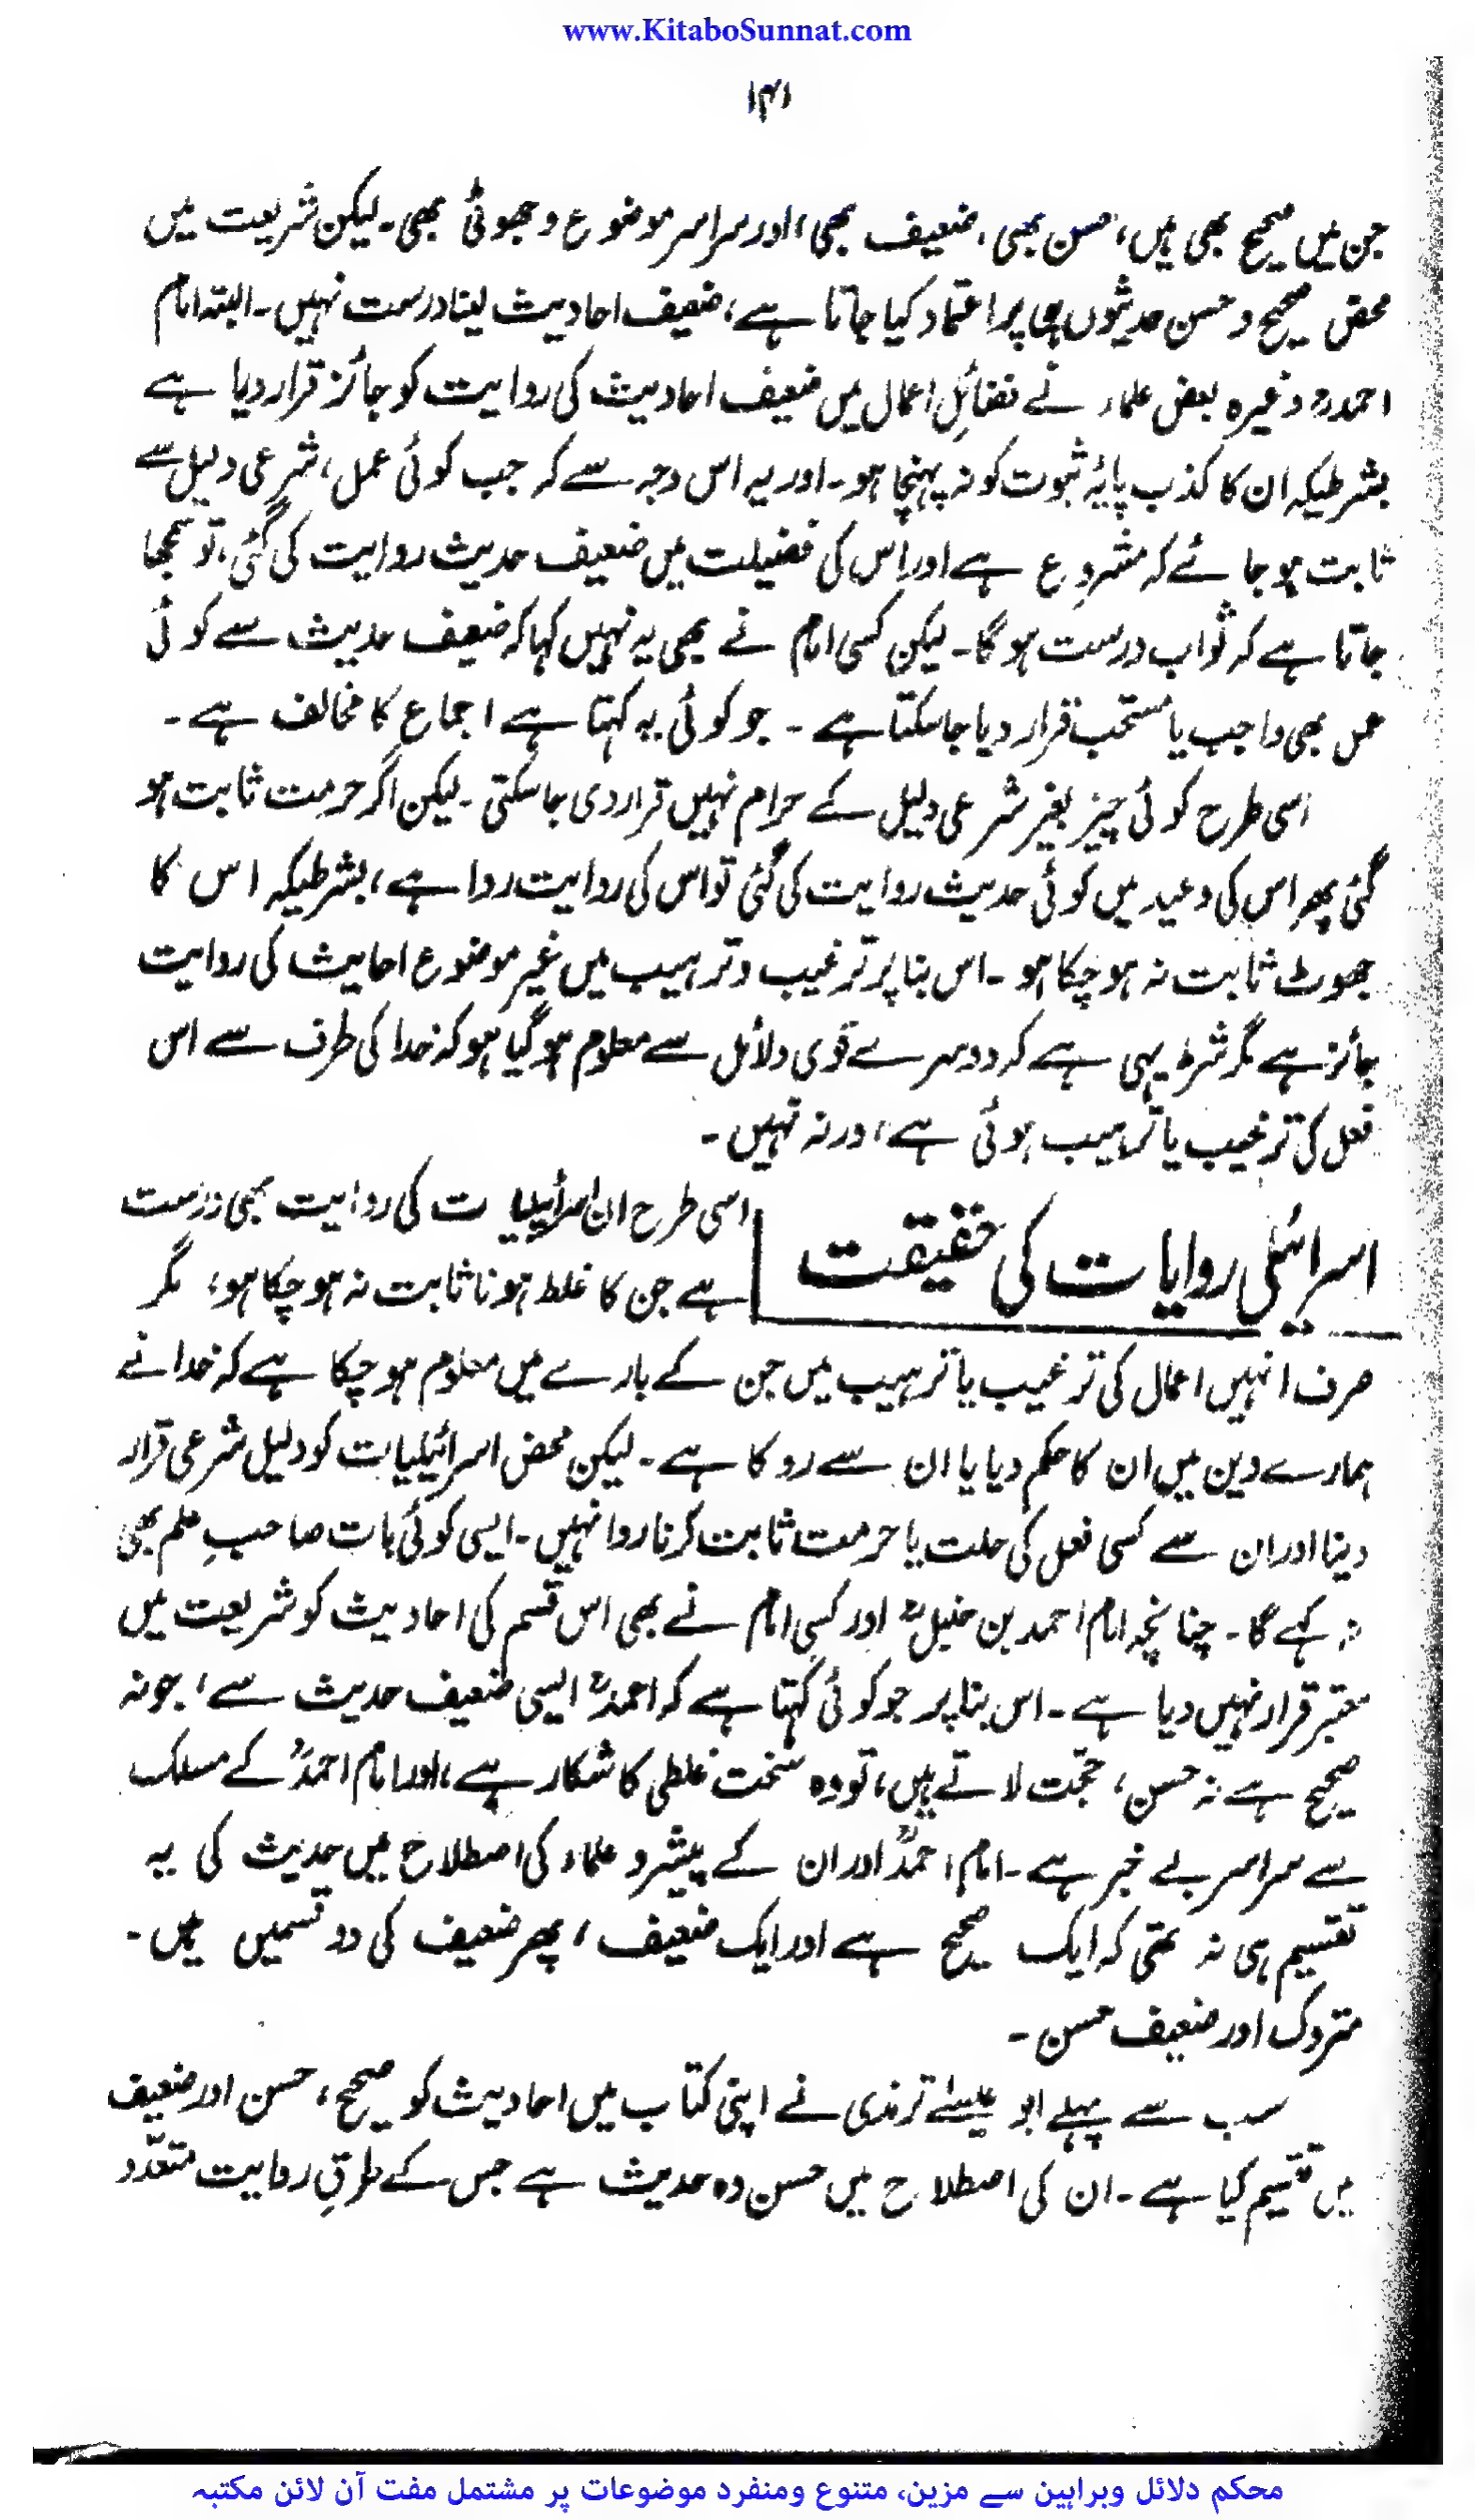 www.KitaboSunnat.com
۱۴۱
جن میں صحیح بھی ہیں، حسن بھی، ضعیف بھی، اور سراسر موضوع و جھوٹی بھی۔ لیکن شریعت میں
محض صحیح و حسن حدیثوں ہی پر اعتماد کیا جاتا ہے، ضعیف احادیث لینا درست نہیں۔ البتہ امام
احمدؒ وغیرہ بعض علماء نے فضائلِ اعمال میں ضعیف احادیث کی روایت کو جائز قرار دیا ہے
بشرطیکہ ان کا کذب پایۂ ثبوت کو نہ پہنچا ہو۔ اور یہ اس وجہ سے کہ جب کوئی عمل، شرعی دلیل سے
ثابت ہو جائے کہ مشروع ہے اور اس کی فضیلت میں ضعیف حدیث روایت کی گئی، تو سمجھا
جاتا ہے کہ ثواب درست ہوگا۔ لیکن کسی امام نے بھی یہ نہیں کہا کہ ضعیف حدیث سے کوئی
عمل بھی واجب یا مستحب قرار دیا جا سکتا ہے۔ جو کوئی یہ کہتا ہے اجماع کا مخالف ہے۔
اسی طرح کوئی چیز بغیر شرعی دلیل کے حرام نہیں قرار دی جا سکتی۔ لیکن اگر حرمت ثابت ہو
گئی پھر اس کی وعید میں کوئی حدیث روایت کی گئی تو اس کی روایت روا ہے، بشرطیکہ اس کا
جھوٹ ثابت نہ ہو چکا ہو۔ اس بنا پر ترغیب و ترہیب میں غیر موضوع احادیث کی روایت
جائز ہے مگر شرط یہی ہے کہ دوسرے قوی دلائل سے معلوم ہو گیا ہو کہ خدا کی طرف سے اس
فعل کی ترغیب یا ترہیب ہوئی ہے، ورنہ نہیں۔
اسرائیلی روایات کی حقیقت
اسی طرح ان اسرائیلیات کی روایت بھی درست
ہے جن کا غلط ہونا ثابت نہ ہو چکا ہو، مگر
صرف انہیں اعمال کی ترغیب یا ترہیب میں جن کے بارے میں معلوم ہو چکا ہے کہ خدا نے
ہمارے دین میں ان کا حکم دیا یا ان سے روکا ہے۔ لیکن محض اسرائیلیات کو دلیل شرعی قرار
دینا اور ان سے کسی فعل کی حلت یا حرمت ثابت کرنا روا نہیں۔ ایسی کوئی بات صاحبِ علم بھی
نہ کہے گا۔ چنانچہ امام احمد بن حنبلؒ اور کسی امام نے بھی اس قسم کی احادیث کو شریعت میں
معتبر قرار نہیں دیا ہے۔ اس بنا پر جو کوئی کہتا ہے کہ احمدؒ ایسی ضعیف حدیث سے، جو نہ
صحیح ہے نہ حسن، حجت لاتے ہیں، تو وہ سخت غلطی کا شکار ہے، اور امام احمدؒ کے مسلک
سے سراسر بے خبر ہے۔ امام احمدؒ اور ان کے پیشرو علماء کی اصطلاح میں حدیث کی یہ
تقسیم ہی نہ تھی کہ ایک صحیح ہے اور ایک ضعیف، پھر ضعیف کی دو قسمیں ہیں۔
متروک اور ضعیف حسن۔
سب سے پہلے ابو عیسےٰ ترمذی نے اپنی کتاب میں احادیث کو صحیح، حسن اور ضعیف
میں تقسیم کیا ہے۔ ان کی اصطلاح میں حسن وہ حدیث ہے جس کے طرقِ روایت متعدّد
محکم دلائل وبراہین سے مزین، متنوع ومنفرد موضوعات پر مشتمل مفت آن لائن مکتبہ